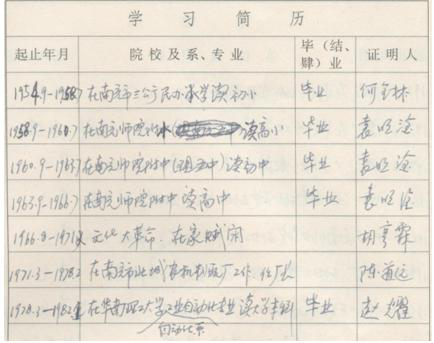 学习简历
起止年月 院校及系、专业 毕(结、肄)业 证明人
1954.9-1958.7 在南充市三公行民办小学读初小 毕业 何全林
1958.9-1960.7 在南充师院附小读高小 毕业 袁旭淦
1960.9-1963.7 在南充师院附中读初中 毕业 袁旭淦
1963.9-1966.7 在南充师院附中读高中 毕业 袁旭淦
1966.8-1971.2 文化大革命在家赋闲 胡亨霖
1971.3-1978.2 在南充市北城厂工作 陈道远
1978.3-1982.1 在华南工大学工业自动化专业读大学本科 毕业 赵耀
自动化系